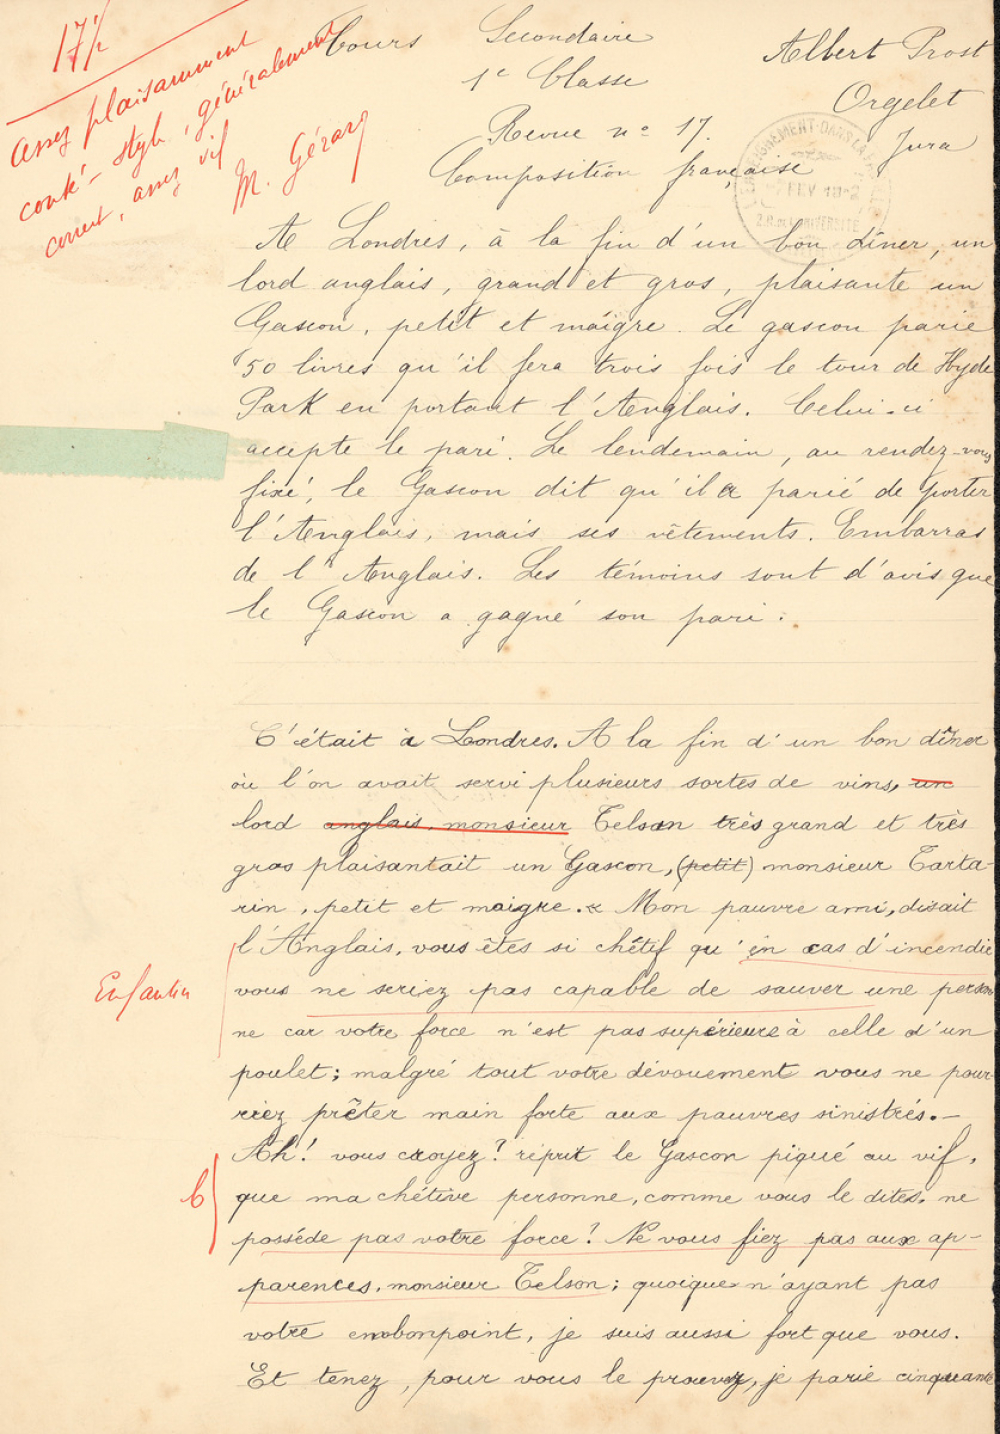 17 1/2
Assez plaisamment
conté - style généralement
correct, assez vif
M. Gérard
Cours Secondaire
1e Classe
Revue no 17.
Composition française
Albert Prost
Orgelet
Jura
L'ENSEIGNEMENT DANS LA FAMILLE
FEV
UNIVERSITÉ
A Londres, à la fin d'un bon dîner, un
lord anglais, grand et gros, plaisante un
Gascon, petit et maigre. Le gascon parie
50 livres qu'il fera trois fois le tour de Hyde
Park en portant l'Anglais. Celui-ci
accepte le pari. Le lendemain, au rendez-vous
fixé, le Gascon dit qu'il a parié de porter
l'Anglais, mais ses vêtements. Embarras
de l'Anglais. Les témoins sont d'avis que
le Gascon a gagné son pari.
C'était à Londres. A la fin d'un bon dîner
où l'on avait servi plusieurs sortes de vins, un
lord anglais, monsieur Telson très grand et très
gros plaisantait un Gascon, (petit) monsieur Tarta-
rin, petit et maigre. « Mon pauvre ami, disait
l'Anglais, vous êtes si chétif qu'en cas d'incendie
vous ne seriez pas capable de sauver une person
ne car votre force n'est pas supérieure à celle d'un
poulet; malgré tout votre dévouement vous ne pour-
riez prêter main forte aux pauvres sinistrés. -
Ah! vous croyez? reprit le Gascon piqué au vif,
que ma chétive personne, comme vous le dites, ne
possède pas votre force? Ne vous fiez pas aux ap-
parences, monsieur Telson; quoique n'ayant pas
votre embonpoint, je suis aussi fort que vous.
Et tenez, pour vous le prouver, je parie cinquante
Enfantin
b